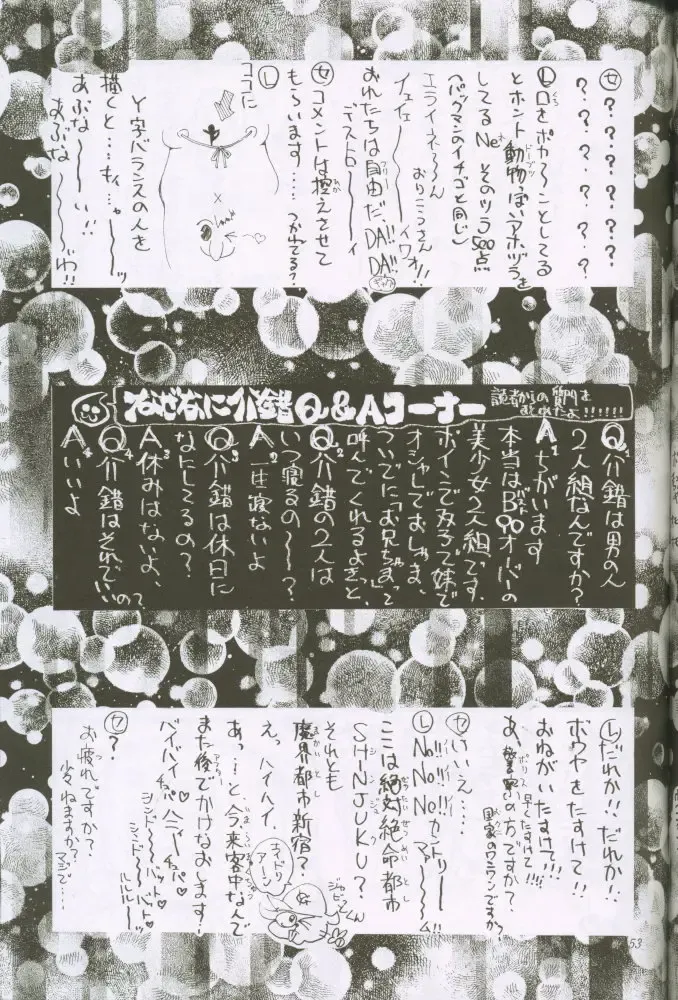 セ ?????????????
L 口をポカ〜〜ことしてる
とホント動物っぽいアホヅラを
してるNe そのツラ500点
へパックマンのイチゴと同じ
エライネ〜〜ん
おりこうさん
イェイェーーイワォ!!
おれたちは自由だ、DA!!DA!!
デストローーイ
セ コメントは控えさせて
もらいます……つかれてる?
L
ココに
Y字バランスの人を
描くと…もィ…ャ〜〜ッ
あぶな〜〜い!!
あぶな〜〜〜わ!!
なぜなに介錯Q&Aコーナー
読者からの質問を
Q1 介錯は男の人
2人組なんですか?
A1 ちがいます
本当はB90オーバーの
美少女2人組です。
ボインでメガネで妹で
オシャレでおしゃま、
ついでに「お兄ちゃま」って
呼んでくれるよきっと、
Q2 介錯の2人は
いつ寝るの〜〜?
A2 一生寝ないよ
Q3 介錯は休日に
なにしてるの?
A3 休みはないよ、
Q4 介錯はそれでいいの?
A4 いいよ
L だれか!!だれか!!
ボウヤをたすけて!!
おねがいたすけて!!
早くたすけて!!!
あ、警察の方ですか?
国家のワンワンですか?
セ いいえ……
L No!!No!!No カントリー
ファァ〜〜〜ム!!
ここは絶対絶命都市
SHINJUKU?
それとも
魔界都市新宿?
えっ、ハイハイ、
あっ…?と、今来客中なんで
また後でかけなおします!
バイハイチュパハニーチュパ♡
シンドーーバット♡
シンドーーバト♡
ルルルー
エイドリアーン
ジャピョンくん
セ ?
お疲れですか?
少しねますか?
マジで…
53